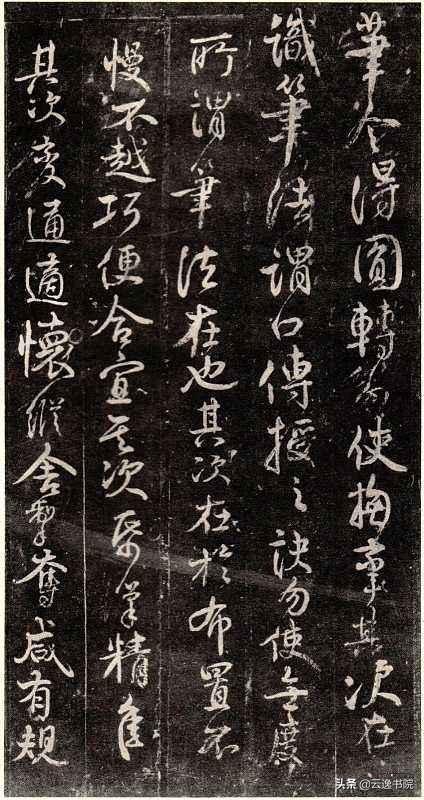 筆令得圓轉勿使拘攣其次在
識筆法謂口傳授之訣勿使無度
所謂筆法在也其次在於布置不
慢不越巧便合宜其次紙筆精佳
其次變通適懷縱舍掣奪咸有規
头条 @云逸书院